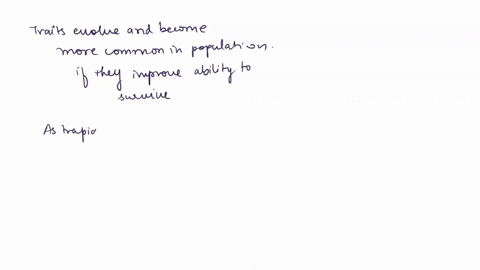 Traits evolve and become
more common in population.
if they improve ability to
survive
As trapic